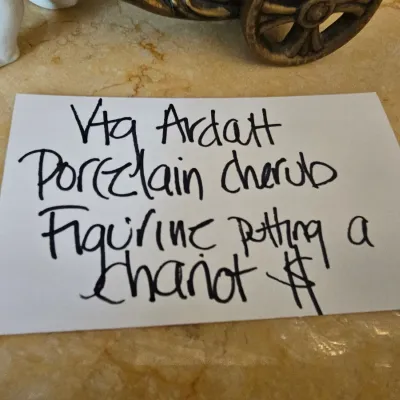 Vtg Ardatt
Porcelain cherub
Figurine putting a
chariot $